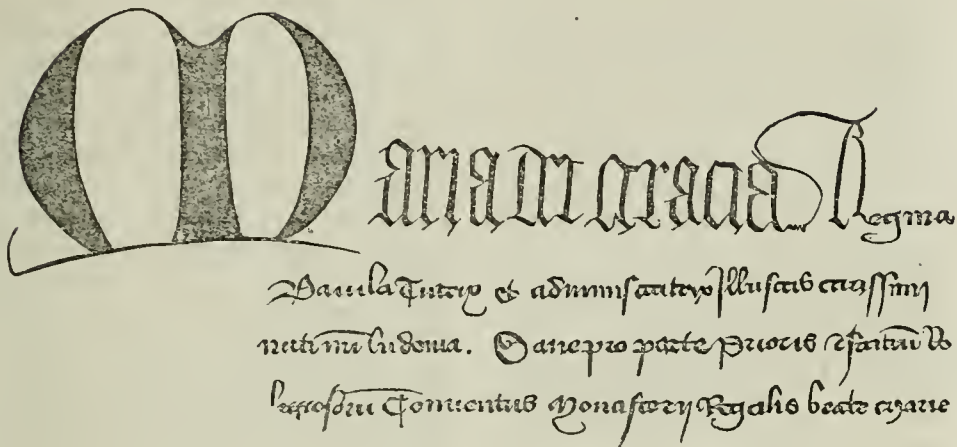 Maria di gracia Regina
Baiula Tutrix et administratrix Illustris carissimi
nati nri ludouici. Sane pro parte Prioris & fratru Re
ligiosoru Conuentus Monasterij Regalis beate marie